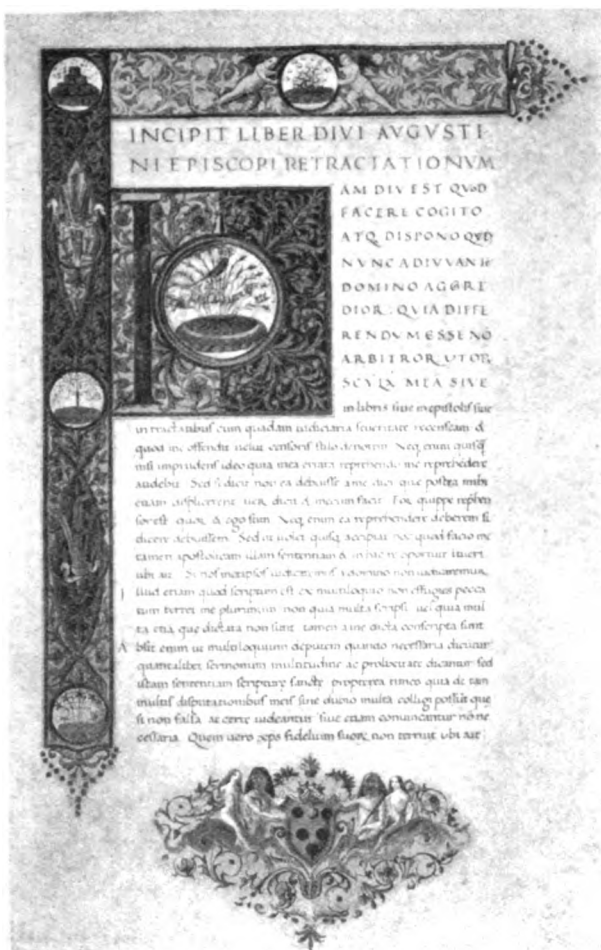 INCIPIT LIBER DIVI AVGVSTI
NI EPISCOPI RETRACTATIONVM
IAM DIV EST QVOD
FACERE COGITO
ATQ DISPONO QVD
NVNC ADIVVANTE
DOMINO AGGRE
DIOR. QVIA DIFFE
RENDVM ESSE NO
ARBITROR VT OP
SCVLA MEA SIVE
in libris siue in epistolis siue
in tractatibus cum quadam iudiciaria seueritate recenseam &
quod me offendit uelut censorio stilo denotem Neq enim quisq
nisi imprudens ideo quia mea errata reprehendo me reprehedere
audebit Sed si dicit non ea debuisse a me dici que postea mihi
etiam displicerent uera dicit & mecum facit
sor est quor & ego sum Neq enim ea reprehendere deberem si
dicere debuissem Sed ut uolet quisq accipiat hoc quod facio me
tamen apostolicam illam sententiam & in hac re oportuit itueri
ubi ait Si nos ipsos a domino non iudicaremur
Illud etiam quod scriptum est ex multiloquio non effugies pecca
tum terret me plurimum non quia multa scripsi uel quia mul
ta etia que dictata non sunt tamen a me dicta conscripta sunt
Absit enim ut multiloquium deputem quando necessaria dicuntur
quantalibet sermonum multitudine ac prolixitate dicantur sed
istam sententiam scripture sancte propterea timeo quia de tam
multis disputationibus meis sine dubio multa colligi possut que
si non falsa at certe uideantur siue etiam conuincantur no ne
cessaria Quem uero xps fidelium suor non terruit ubi ait